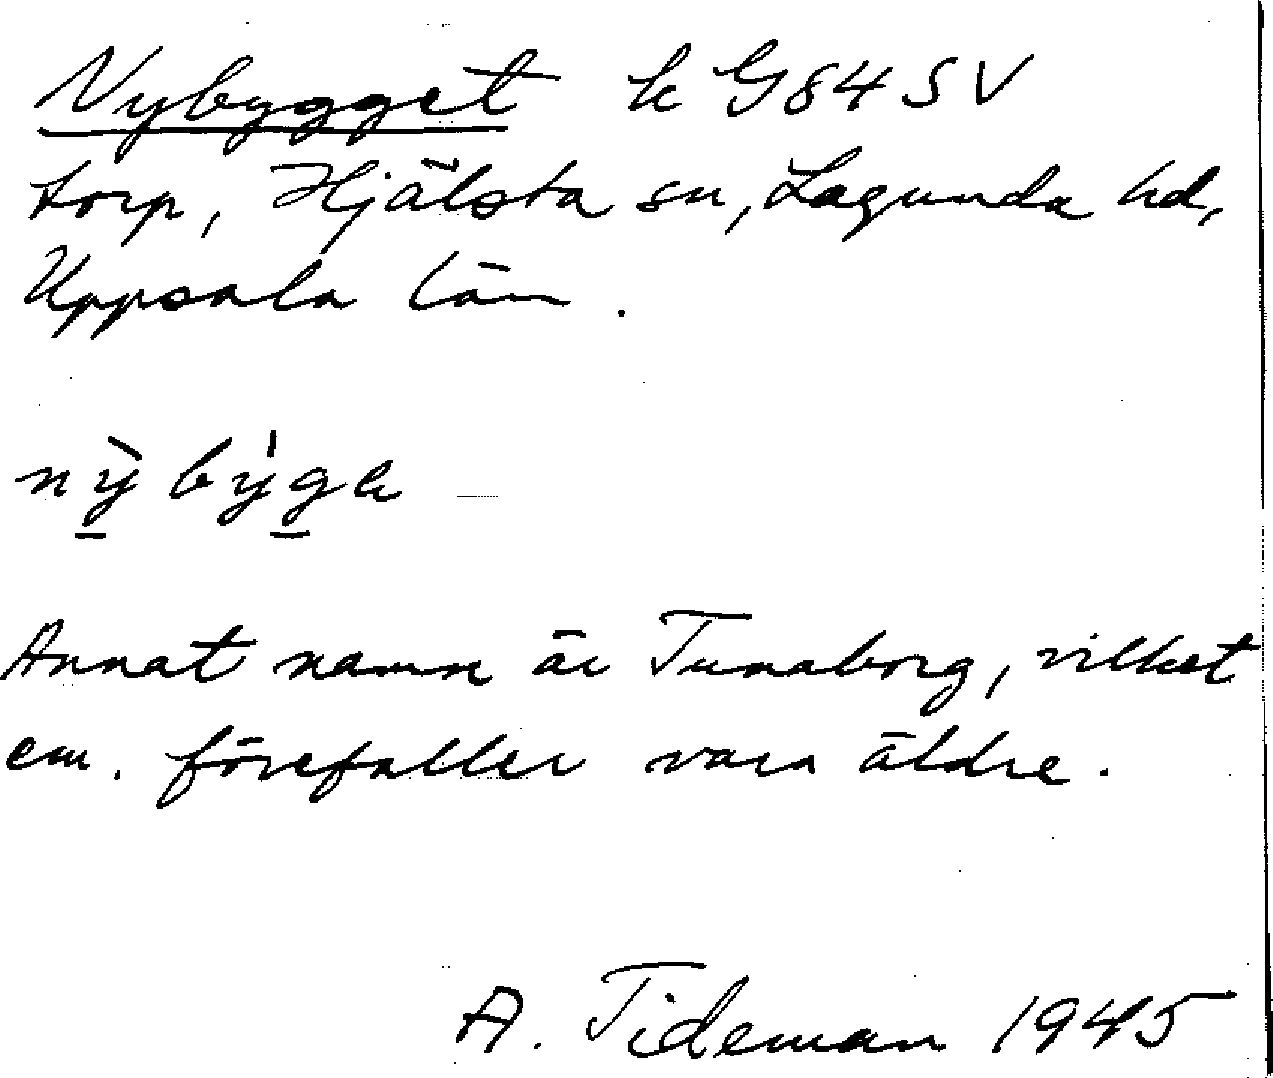 Nybygget k G84SV
torp, Hjälsta sn, Lagunda hd,
Uppsala län.
nỳbýga
Annat namn är Tunaborg, vilket
em. förefaller vara äldre.
A. Tideman 1945